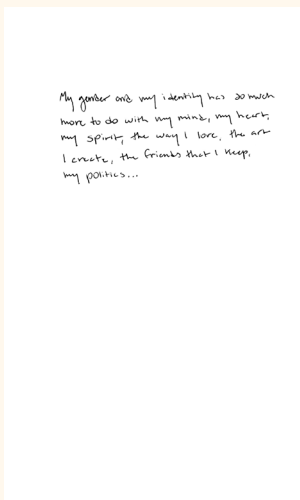 My gender and my identity has so much
more to do with my mind, my heart,
my spirit, the way I love, the art
I create, the friends that I keep,
my politics...